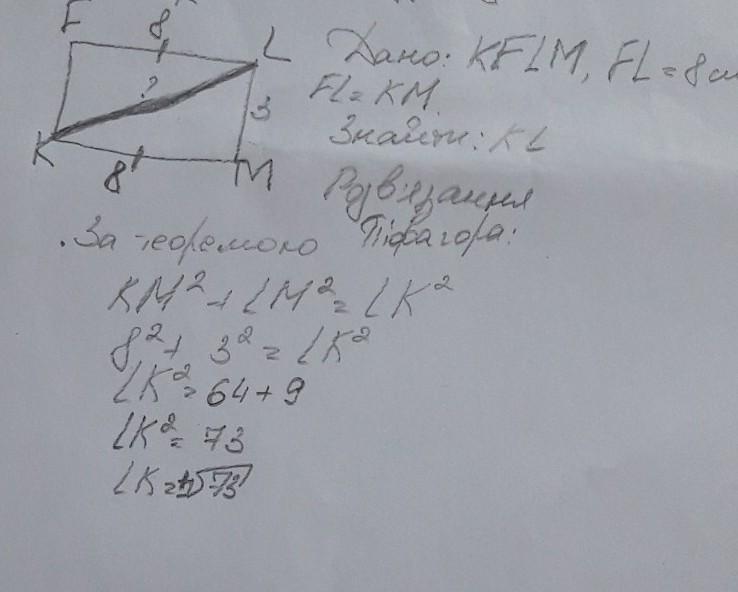 F 8 L
Дано: KFLM, FL = 8 см
?
3
FL = KM
Знайти: KL
K 8 M
Розв'язання
За теоремою Піфагора:
KM² + LM² = LK²
8² + 3² = LK²
LK² = 64 + 9
LK² = 73
LK = √73